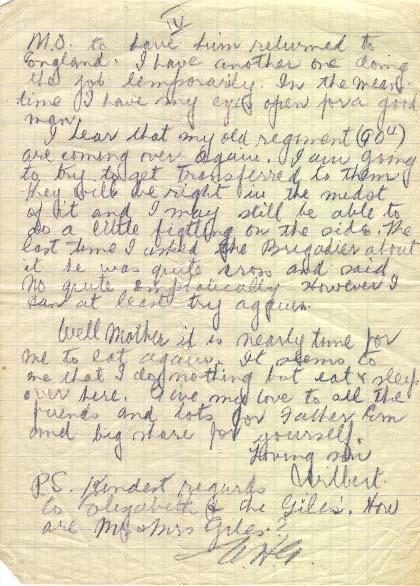 IV
M.O. to have him returned to
England. I have another one doing
the job temporarily. In the mean
time I have my eyes open for a good
man.
I hear that my old regiment (90th)
are coming over again. I am going
to try to get transferred to them
they will be right in the midst
of it and I may still be able to
do a little fighting on the side. The
last time I asked the Brigadier about
it he was quite cross and said
No quite emphatically However I
can at least try again.
Well Mother it is nearly time for
me to eat again. It seems to
me that I do nothing but eat & sleep
over here. Give my love to all the
friends and lots for Father Ern
and big share for yourself.
Loving son
Wilbert.
P.S. Kindest regards
to Elizabeth & the Giles'. How
are Mr & Mrs Giles?